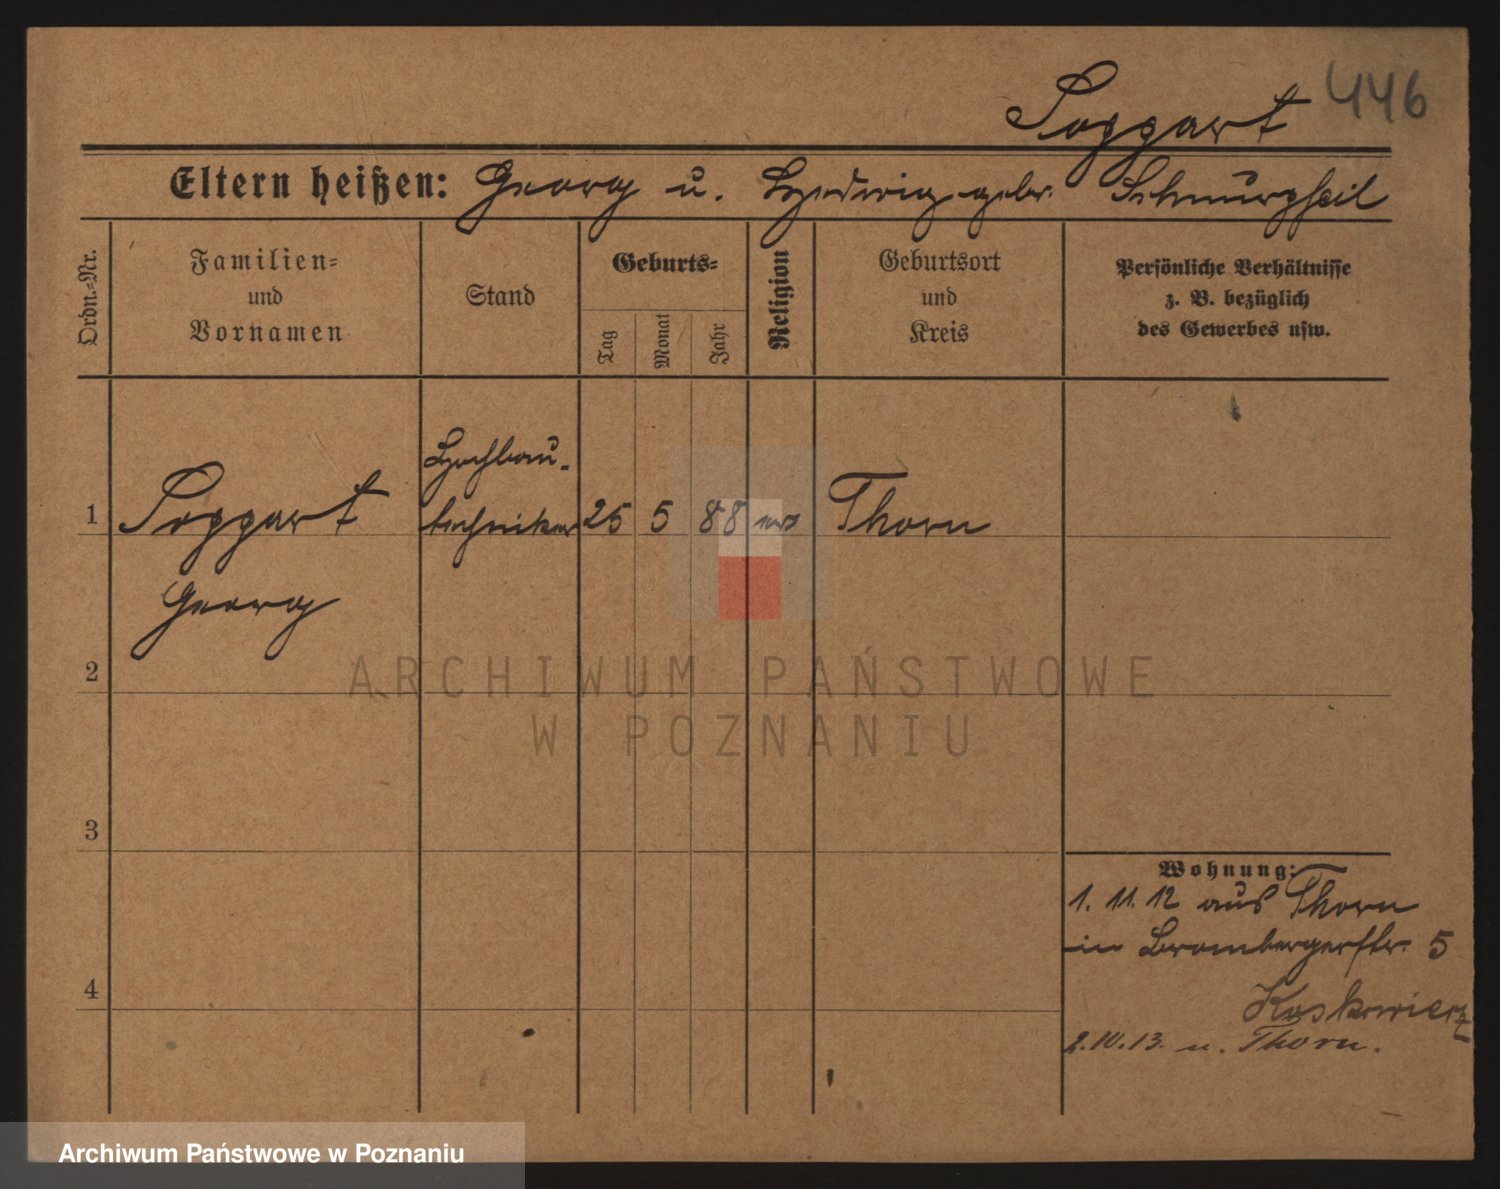 Soppart 446
Eltern heißen: Georg u. Hedwig geb. Schnurpfeil
Ordn.-Nr.
Familien-
und
Vornamen
Stand
Geburts-
Tag
Monat
Jahr
Religion
Geburtsort
und
Kreis
Persönliche Verhältnisse
z. B. bezüglich
des Gewerbes usw.
Hochbau-
1 Soppart techniker 25 5 88 Thorn
Georg
2
3
4
Wohnung:
1. 11. 12 aus Thorn
in Brombergerstr. 5
2.10.13. n. Thorn.
ARCHIWUM PAŃSTWOWE
W POZNANIU
Archiwum Państwowe w Poznaniu